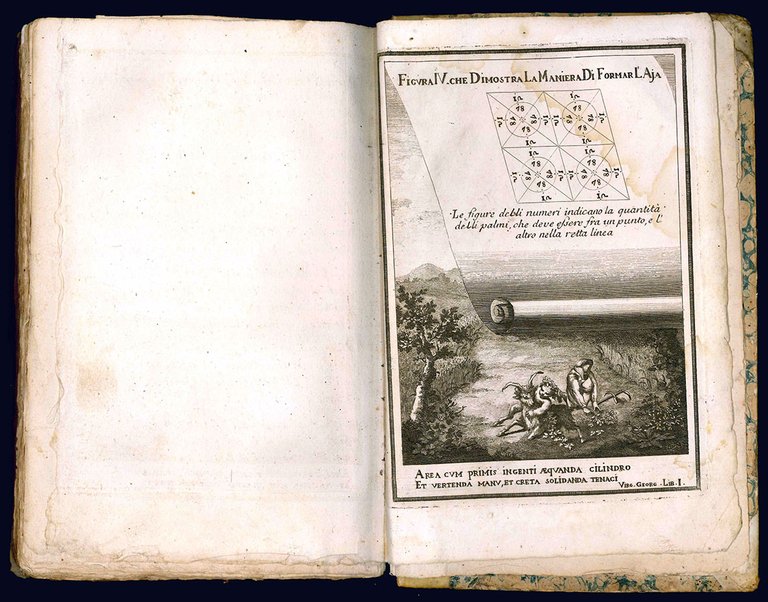 FIGVRA IV. CHE DIMOSTRA LA MANIERA DI FORMAR L'AJA
Le figure delli numeri indicano la quantità
delli palmi, che deve essere fra un punto, e l'
altro nella retta linea
AREA CVM PRIMIS INGENTI ÆQVANDA CILINDRO
ET VERTENDA MANV, ET CRETA SOLIDANDA TENACI
VIRG. GEORG. LIB. I.